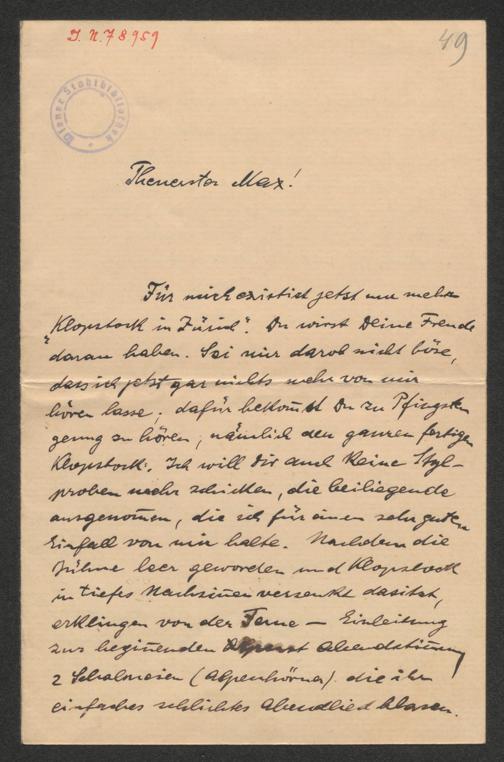 J. N. 78959
49
Wiener Stadtbibliothek
Theuerster Max!
Für mich existirt jetzt nur mehr
„Klopstock in Zürich“. Du wirst Deine Freude
daran haben. Sei mir darob nicht böse,
dass ich jetzt gar nichts mehr von mir
hören lasse; dafür bekom̅st Du zu Pfingsten
genug zu hören, nämlich den ganzen fertigen
Klopstock. Ich will Dir auch keine Styl-
proben mehr schicken, die beiliegende
ausgenom̅en, die ich für einen sehr guten
Einfall von mir halte. Nachdem die
Bühne leer geworden und Klopstock
in tiefes Nachsin̅en versenkt dasitzt,
erklingen von der Ferne — Einleitung
zur begin̅enden Abendstim̅ung
2 Schalmeien (Alpenhörner) die ihr
einfaches schlichtes Abendlied blasen.